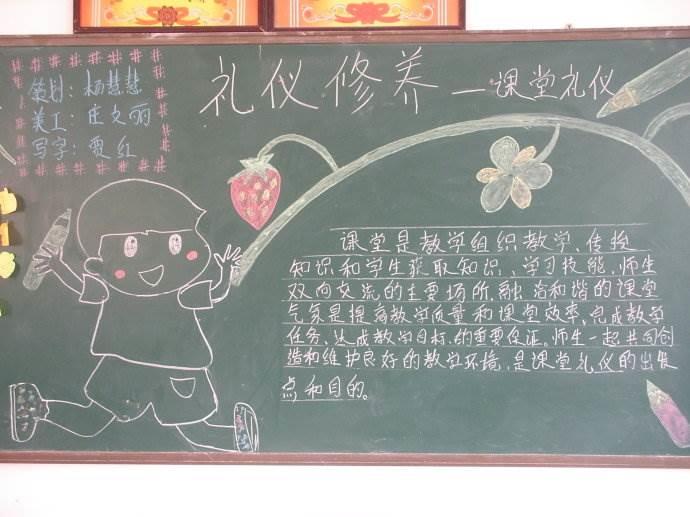 礼仪修养—课堂礼仪
策划：杨慧慧
美工：庄文丽
写字：贾红
课堂是教学组织教学、传授
知识和学生获取知识、学习技能，师生
双向交流的主要场所，融洽和谐的课堂
气氛是提高教学质量和课堂效率、完成教学
任务、达成教学目标的重要保证。师生一起共同创
造和维护良好的教学环境，是课堂礼仪的出发
点和目的。